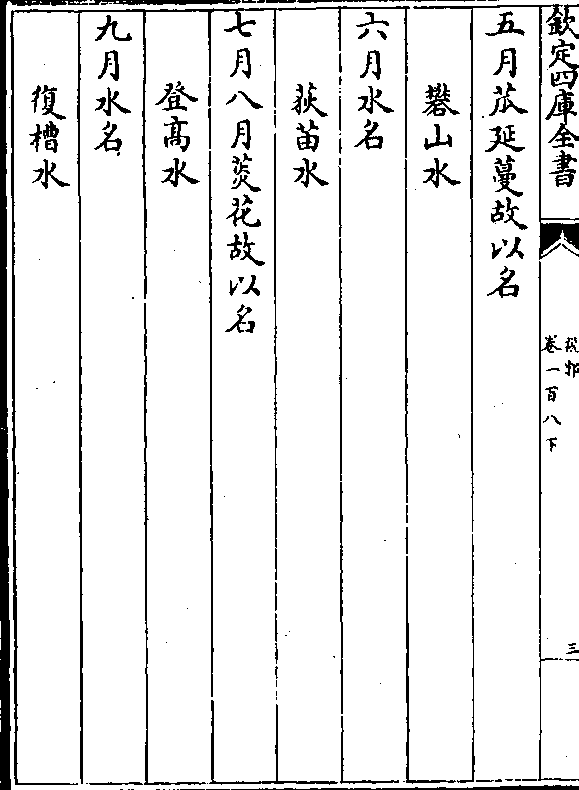 欽定四庫全書
說郛
卷一百八下
三
五月苽延蔓故以名
礬山水
六月水名
荻苗水
七月八月菼花故以名
登高水
九月水名
復槽水